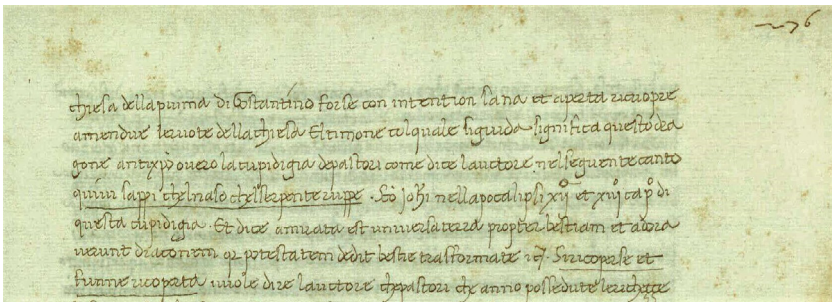 76
chiesa della piuma di Costantino forse con intention sana et aperta ricuopre
amendue le ruote della chiesa El timone colquale si guida significa questo dra
gone antixpo overo la cupidigia de pastori come dice lauctore nel seguente canto
quivi sappi chel vaso chel serpente ruppe . Sco johi nell apocalipsi xij et xvij capo di
questa cupidigia . Et dice amirata est universa terra propter bestiam et adora
verunt draconem qr potestatem dedit bestie trasformate Si ricoperse et
funne ricoperta . vuole dire lauctore che pastori che anno possedute le richeçe